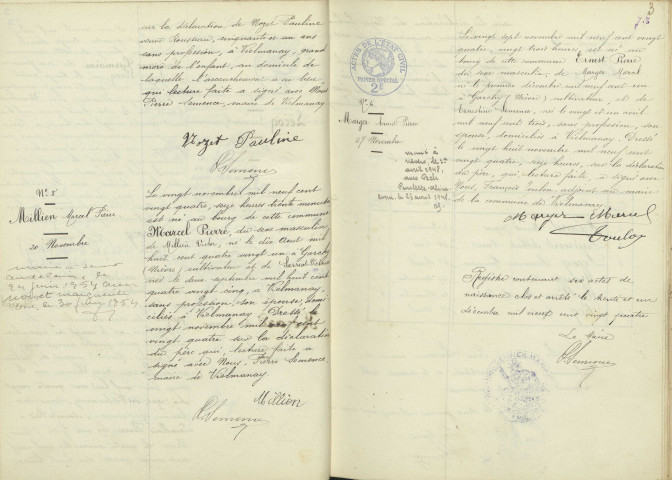 sur la déclaration de Nozet Pauline
veuve cinquante et un ans
sans profession, à Vielmanay, grand
mère de l'enfant, au domicile de
laquelle l'accouchement a eu lieu,
qui lecture faite a signé avec Nous
Pierre Semence, maire de Vielmanay
Nozet Pauline
PSemence
N° 5
Millien Marcel Pierre
20 Novembre
24 juin 1954 avec
Nozet
le 30 juin 1954
Le vingt novembre mil neuf cent
vingt quatre, seize heures trente minutes
est né au bourg de cette commune
Marcel Pierre, du sexe masculin
de Millien né le dix août mil
huit cent quatre vingt un à Garchy
Nièvre, cultivateur et de
née le deux septembre mil huit cent
quatre vingt cinq, à Vielmanay,
sans profession, son épouse, domi
ciliés à Vielmanay. Dressé le
vingt novembre mil neuf cent
vingt quatre sur la déclaration
du père qui, lecture faite a
signé avec Nous, Pierre Semence,
maire de Vielmanay
Millien
PSemence
3
ACTES DE L'ETAT CIVIL
PAPIER SPECIAL
2F
N° 6
Marga Ernest Pierre
27 Novembre
marié à
avril 1948,
avec
1948.
Le vingt sept novembre mil neuf cent vingt
quatre, vingt trois heures, est né au
bourg de cette commune Ernest Pierre
du sexe masculin, de Marga Marcel
né le premier décembre mil neuf cent un
à Garchy (Nièvre) cultivateur, et de
Ernestine Semence, née le vingt et un avril
mil neuf cent trois, sans profession, son
épouse, domiciliés à Vielmanay. Dressé
le vingt huit novembre mil neuf cent
vingt quatre, seize heures, sur la déclaration
du père, qui, lecture faite, a signé avec
Nous, François adjoint au maire
de la commune de Vielmanay
Marga Marcel
Registre contenant six actes de
naissance clos et arrêté le trente et un
décembre mil neuf cent vingt quatre
Le Maire
PSemence